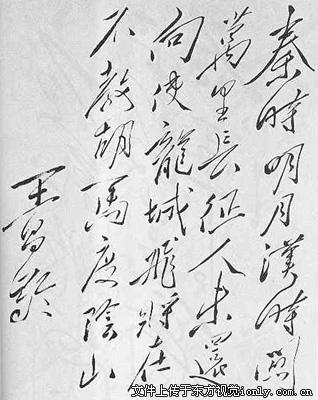 秦時明月漢時關
萬里長征人未還
向使龍城飛將在
不教胡馬度陰山
王昌齡
文件上传于东方视觉ionly.com.cn